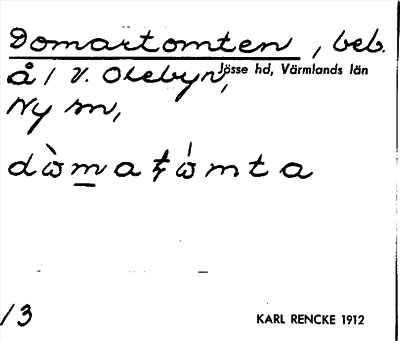 Domartomten, beb.
å / V. Olebyn, Jösse hd, Värmlands län
Ny sn,
dὼmaťώmta
/3
KARL RENCKE 1912